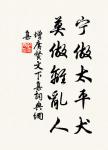 宁做太平犬
莫做離亂人
增广贤文下集詞典網
集